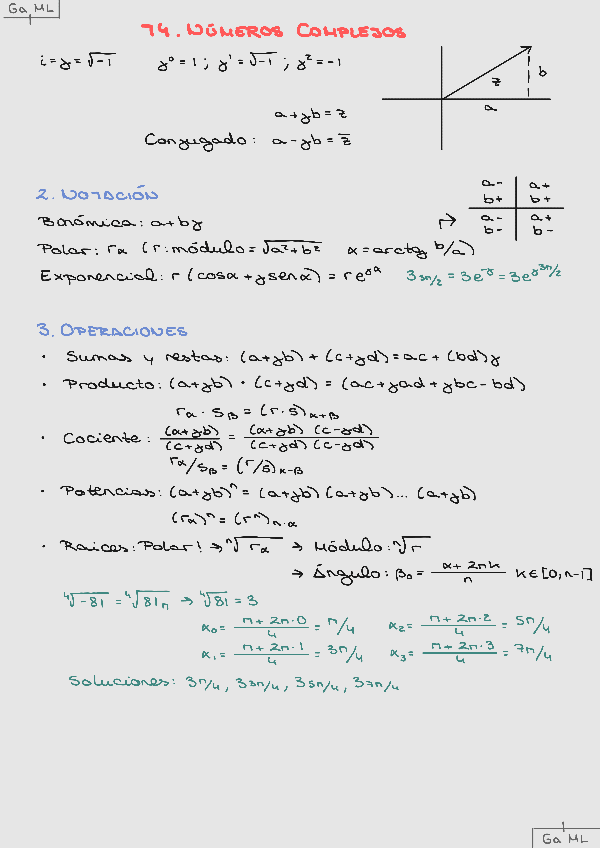 Ga ML
74. NÚMEROS COMPLEJOS
i = j = √-1   j⁰ = 1 ; j¹ = √-1 ; j² = -1
b
z
a
a + jb = z
Conjugado: a - jb = z̅
a- a+
b+ b+
a- a+
b- b-
2. NOTACIÓN
Binómica: a + bj
Polar: rα (r: módulo = √a² + b²   α = arctg b/a)
Exponencial: r (cosα + j senα) = re^jα   3 3π/2 = 3e^-j = 3e^j3π/2
3. OPERACIONES
· Sumas y restas: (a + jb) + (c + jd) = ac + (bd)j
· Producto: (a + jb) · (c + jd) = (ac + jad + jbc - bd)
rα · sβ = (r · s)α+β
· Cociente: (a + jb)/(c + jd) = (a + jb)(c - jd)/(c + jd)(c - jd)
rα/sβ = (r/s)α-β
· Potencias: (a + jb)ⁿ = (a + jb)(a + jb)... (a + jb)
(rα)ⁿ = (rⁿ)n·α
· Raices: Polar! → ⁿ√rα → Módulo: ⁿ√r
→ Ángulo: β₀ = (α + 2πk)/n   k ∈ [0, n-1]
⁴√-81 = ⁴√81π → ⁴√81 = 3
α₀ = (π + 2π·0)/4 = π/4   α₂ = (π + 2π·2)/4 = 5π/4
α₁ = (π + 2π·1)/4 = 3π/4   α₃ = (π + 2π·3)/4 = 7π/4
Soluciones: 3 π/4, 3 3π/4, 3 5π/4, 3 7π/4
Ga ML